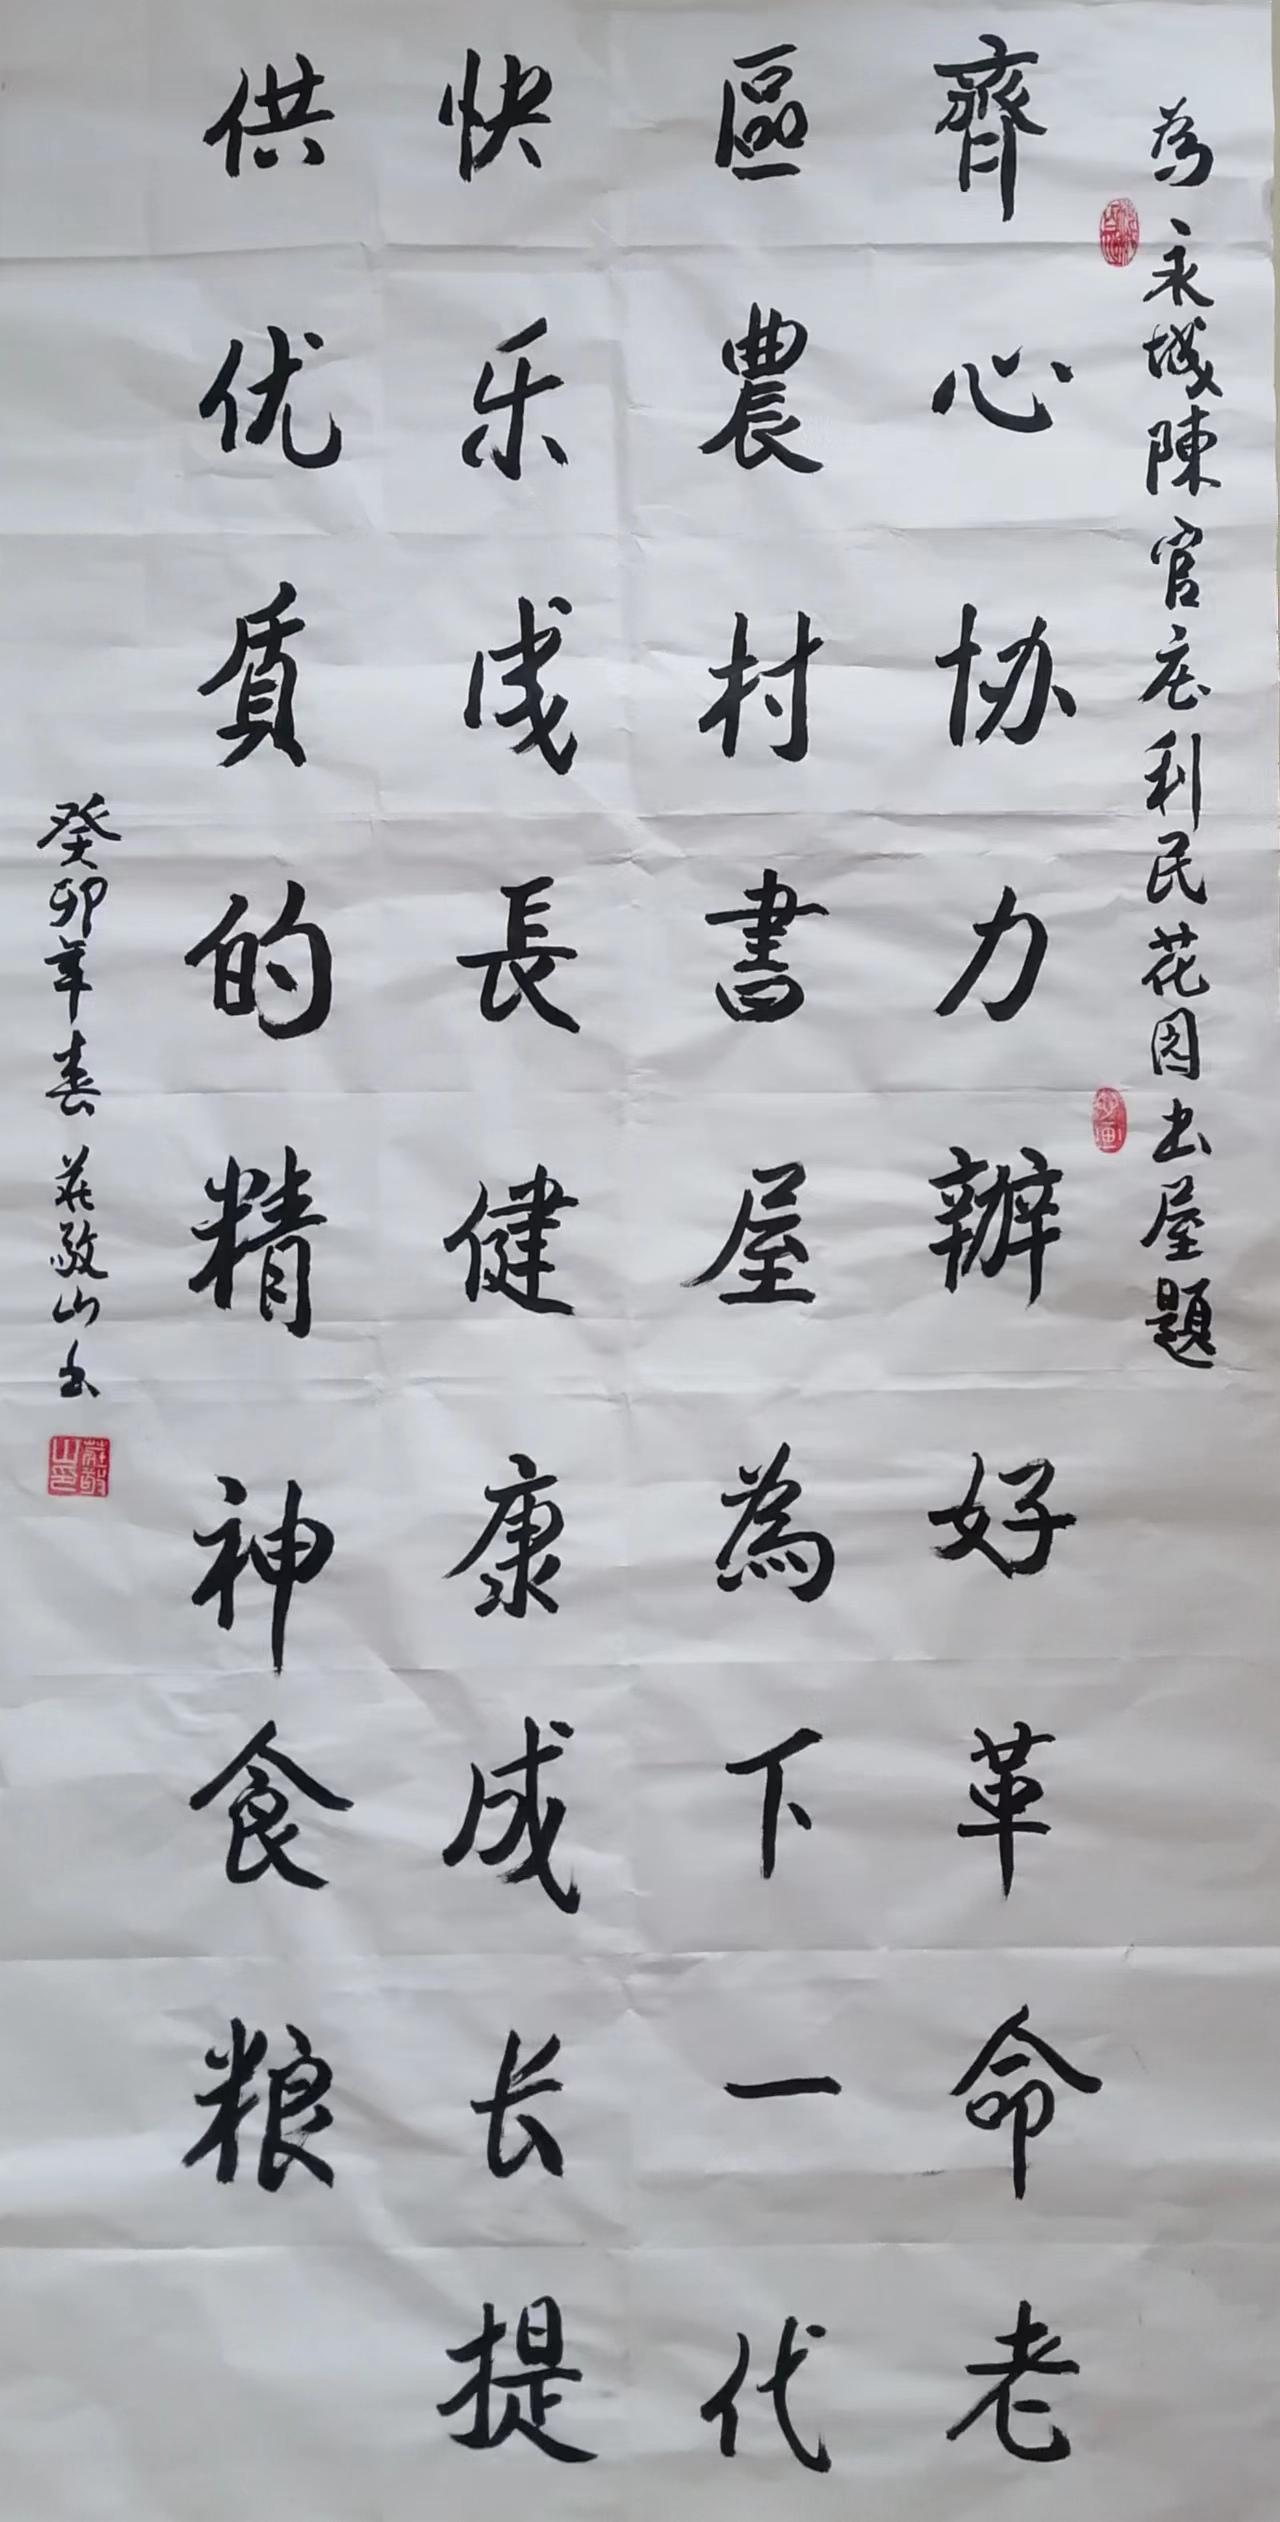 為永城陳官庄利民花园书屋題
齊心协力辦好革命老
區農村書屋為下一代
快乐成長健康成长提
供优质的精神食粮
癸卯年春莊敬山书
莊敬山印